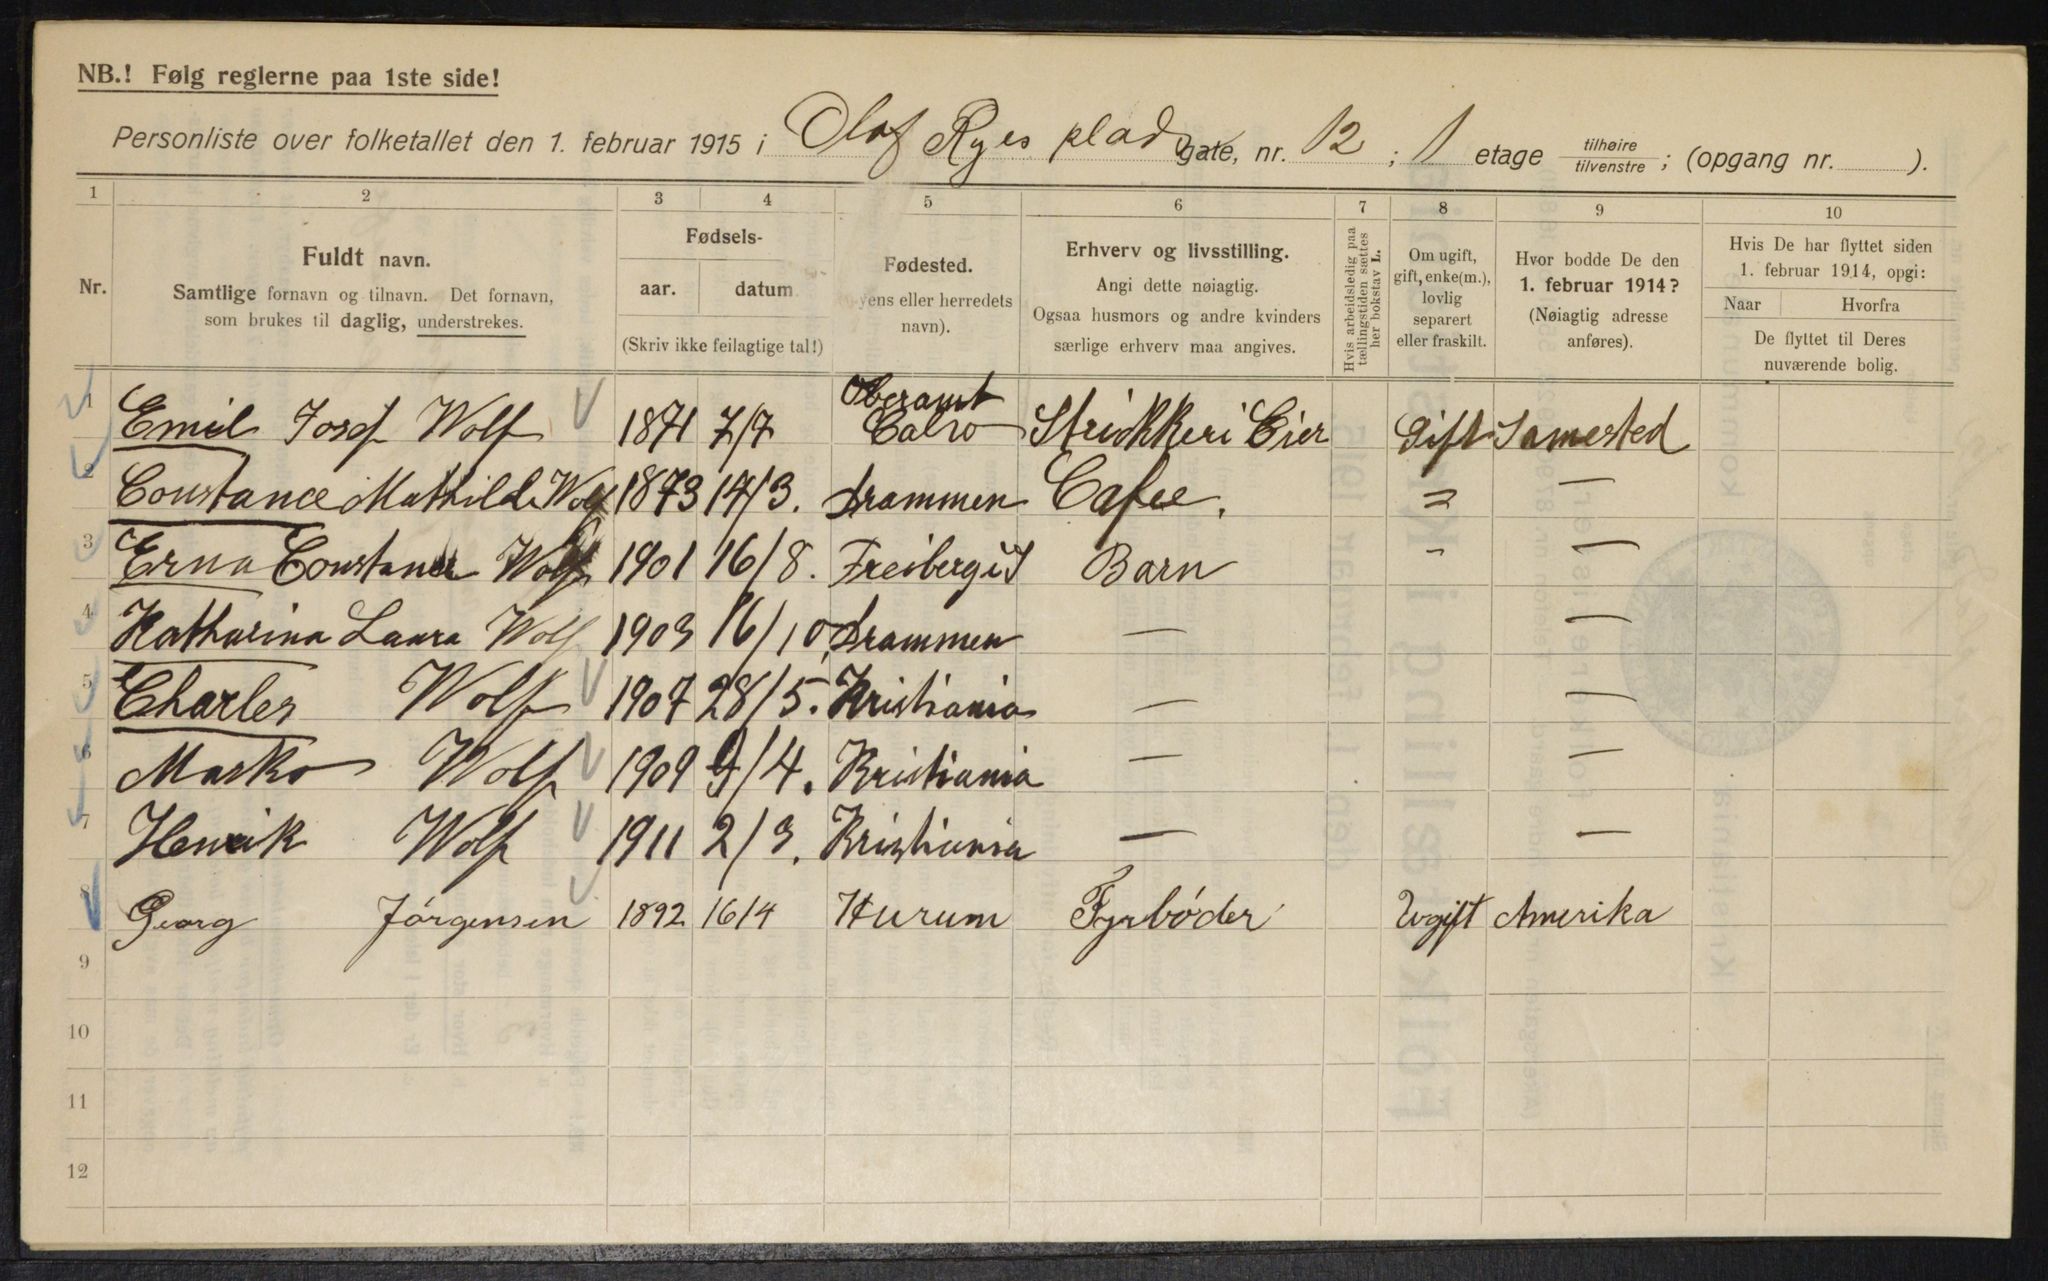 NB.! Følg reglerne paa 1ste side!
Personliste over folketallet den 1. februar 1915 i Olaf Ryes plads gate, nr. 12 ; 1 etage tilhøire tilvenstre ; (opgang nr. ).
1 2 3 4 5 6 7 8 9 10
Nr.
Fuldt navn.
Samtlige fornavn og tilnavn. Det fornavn,
som brukes til daglig, understrekes.
Fødsels-
aar. datum
(Skriv ikke feilagtige tal!)
Fødested.
yens eller herredets
navn).
Erhverv og livsstilling.
Angi dette nøiagtig.
Ogsaa husmors og andre kvinders
særlige erhverv maa angives.
Hvis arbeidsledig paa
tællingstiden sættes
her bokstav L.
Om ugift,
gift, enke(m.),
lovlig
separert
eller fraskilt.
Hvor bodde De den
1. februar 1914?
(Nøiagtig adresse
anføres).
Hvis De har flyttet siden
1. februar 1914, opgi:
Naar Hvorfra
De flyttet til Deres
nuværende bolig.
1 Emil Josef Wolf 1871 7/7 Oberamt Calw Strikkeri Eier Gift Samested
2 Constance Mathilde Wolf 1873 14/3. Drammen Cafee. = —
3 Erna Constance Wolf 1901 16/8. Freiberg i S Barn - —
4 Katharina Laura Wolf 1903 16/10. Drammen — —
5 Charles Wolf 1907 28/5. Kristiania — —
6 Marko Wolf 1909 9/4. Kristiania — —
7 Henrik Wolf 1911 2/3. Kristiania — —
8 Georg Jørgensen 1892 16/4 Hurum Fyrbøder Ugift Amerika
9
10
11
12